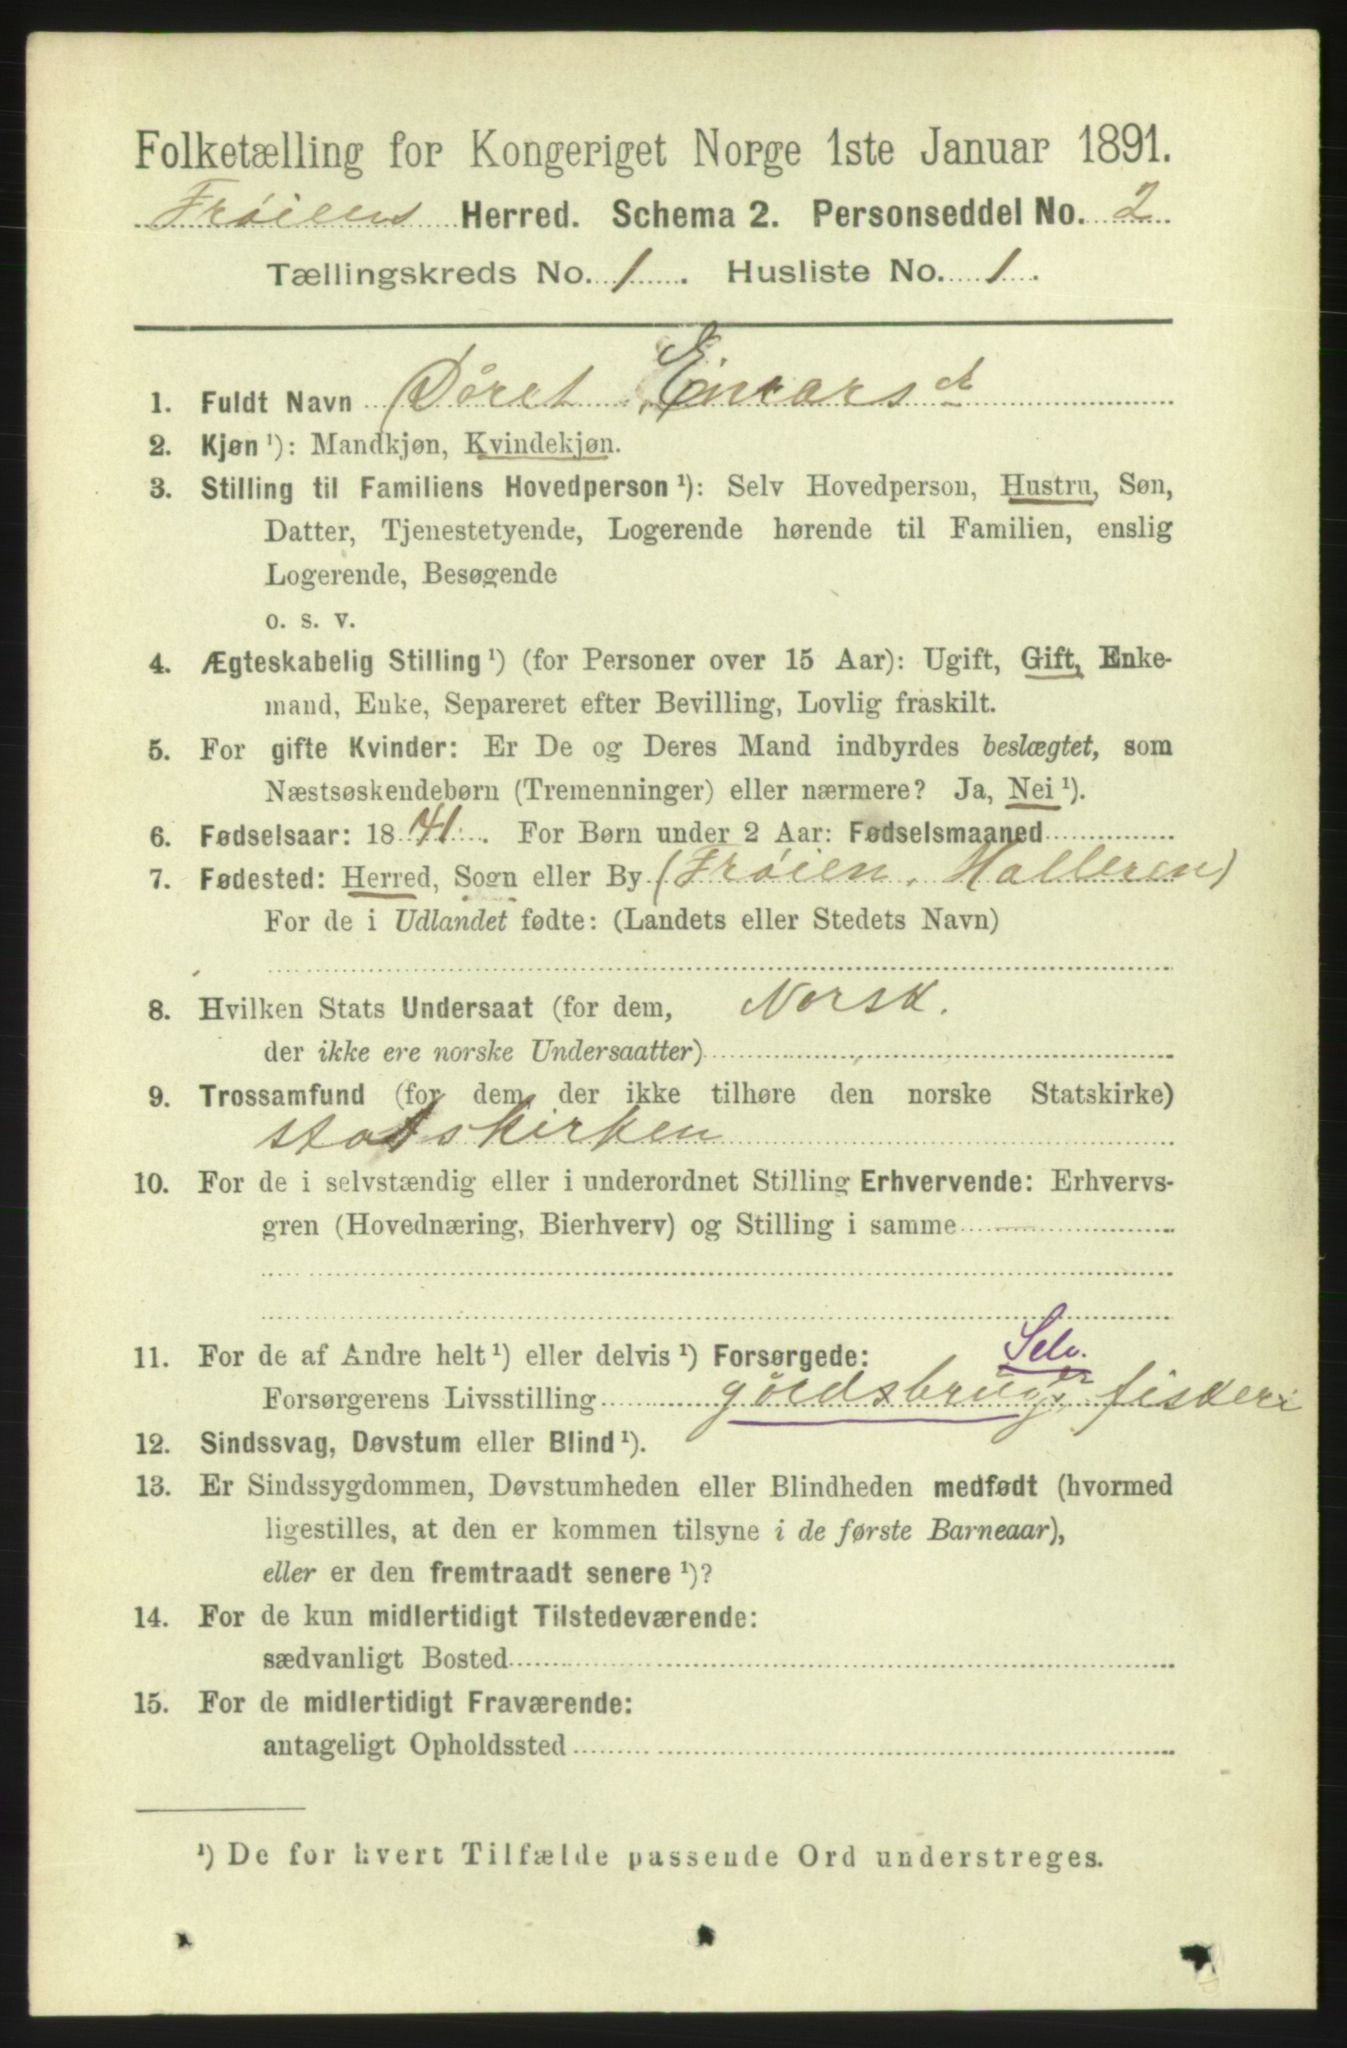 Folketælling for Kongeriget Norge 1ste Januar 1891.
Frøiens Herred. Schema 2. Personseddel No. 2
Tællingskreds No. 1. Husliste No. 1.
1. Fuldt Navn Døret Einarsd
2. Kjøn ¹): Mandkjøn, Kvindekjøn.
3. Stilling til Familiens Hovedperson ¹): Selv Hovedperson, Hustru, Søn,
Datter, Tjenestetyende, Logerende hørende til Familien, enslig
Logerende, Besøgende
o. s. v.
4. Ægteskabelig Stilling ¹) (for Personer over 15 Aar): Ugift, Gift, Enke-
mand, Enke, Separeret efter Bevilling, Lovlig fraskilt.
5. For gifte Kvinder: Er De og Deres Mand indbyrdes beslægtet, som
Næstsøskendebørn (Tremenninger) eller nærmere? Ja, Nei ¹).
6. Fødselsaar: 1841. For Børn under 2 Aar: Fødselsmaaned
7. Fødested: Herred, Sogn eller By (Frøien, Halleren)
For de i Udlandet fødte: (Landets eller Stedets Navn)
8. Hvilken Stats Undersaat (for dem, Norsk.
der ikke ere norske Undersaatter)
9. Trossamfund (for dem der ikke tilhøre den norske Statskirke)
statskirken
10. For de i selvstændig eller i underordnet Stilling Erhvervende: Erhvervs-
gren (Hovednæring, Bierhverv) og Stilling i samme
11. For de af Andre helt ¹) eller delvis ¹) Forsørgede: Selv.
Forsørgerens Livsstilling gårdsbruger fiskeri
12. Sindssvag, Døvstum eller Blind ¹).
13. Er Sindssygdommen, Døvstumheden eller Blindheden medfødt (hvormed
ligestilles, at den er kommen tilsyne i de første Barneaar),
eller er den fremtraadt senere ¹)?
14. For de kun midlertidigt Tilstedeværende:
sædvanligt Bosted
15. For de midlertidigt Fraværende:
antageligt Opholdssted
¹) De for hvert Tilfælde passende Ord understreges.